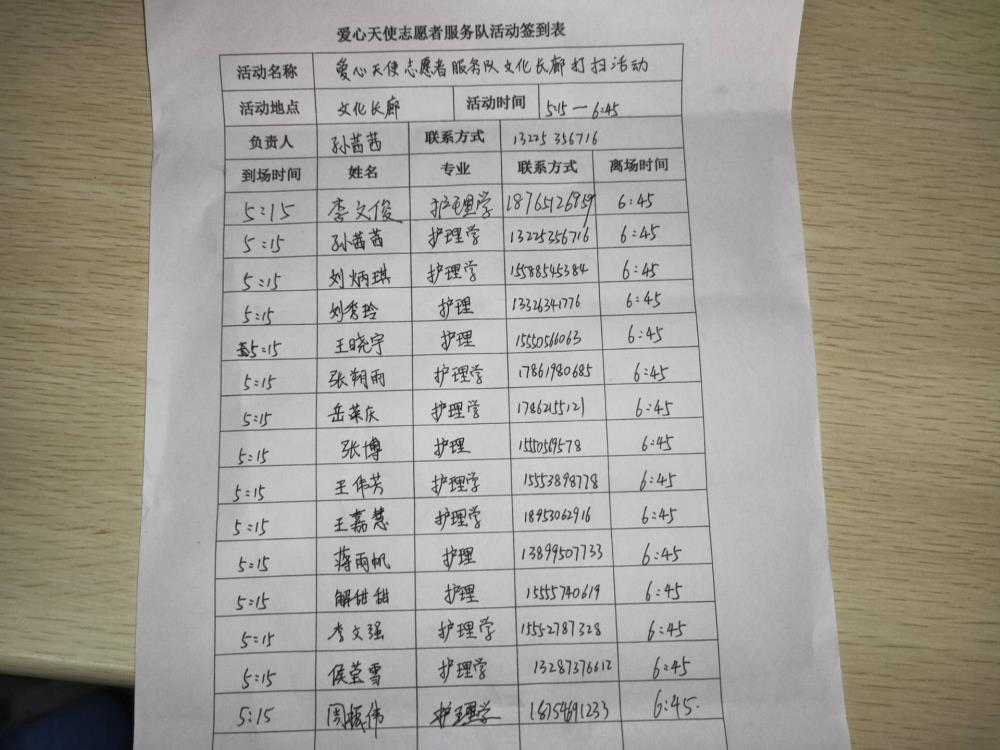 爱心天使志愿者服务队活动签到表
活动名称 爱心天使志愿者服务队文化长廊打扫活动
活动地点 文化长廊 活动时间 5:15—6:45
负责人 孙茜茜 联系方式 13225356716
到场时间 姓名 专业 联系方式 离场时间
5:15 李文俊 护理学 18765126959 6:45
5:15 孙茜茜 护理学 13225356716 6:45
5:15 刘炳琪 护理学 15588545384 6:45
5:15 刘秀玲 护理 13326341776 6:45
5:15 王晓宇 护理 15550566063 6:45
5:15 张翔雨 护理学 17861980685 6:45
5:15 岳荣庆 护理学 17862155121 6:45
5:15 张博 护理 15550569578 6:45
5:15 王伟芳 护理学 15553898778 6:45
5:15 王嘉慧 护理学 18953062916 6:45
5:15 蒋雨帆 护理 13899507733 6:45
5:15 解甜甜 护理 15555740619 6:45
5:15 李文强 护理学 15552787328 6:45
5:15 侯莹雪 护理学 13287376612 6:45
5:15 周振伟 护理学 18754691233 6:45.